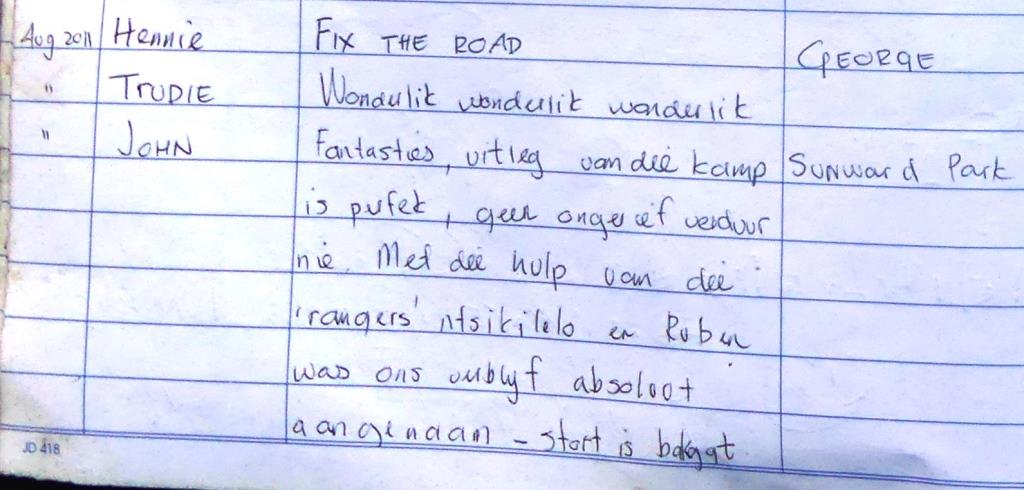 Aug 2011 Hennie FIX THE ROAD GEORGE
" TRUDIE Wonderlik wonderlik wonderlik
" JOHN Fantasties, uitleg van die kamp Sunward Park
is perfek, geen ongerief verduur
nie. Met die hulp van die
'rangers' ntsikilelo en Ruben
was ons verblyf absoloot
aangenaam - stort is bakgat
JD 418